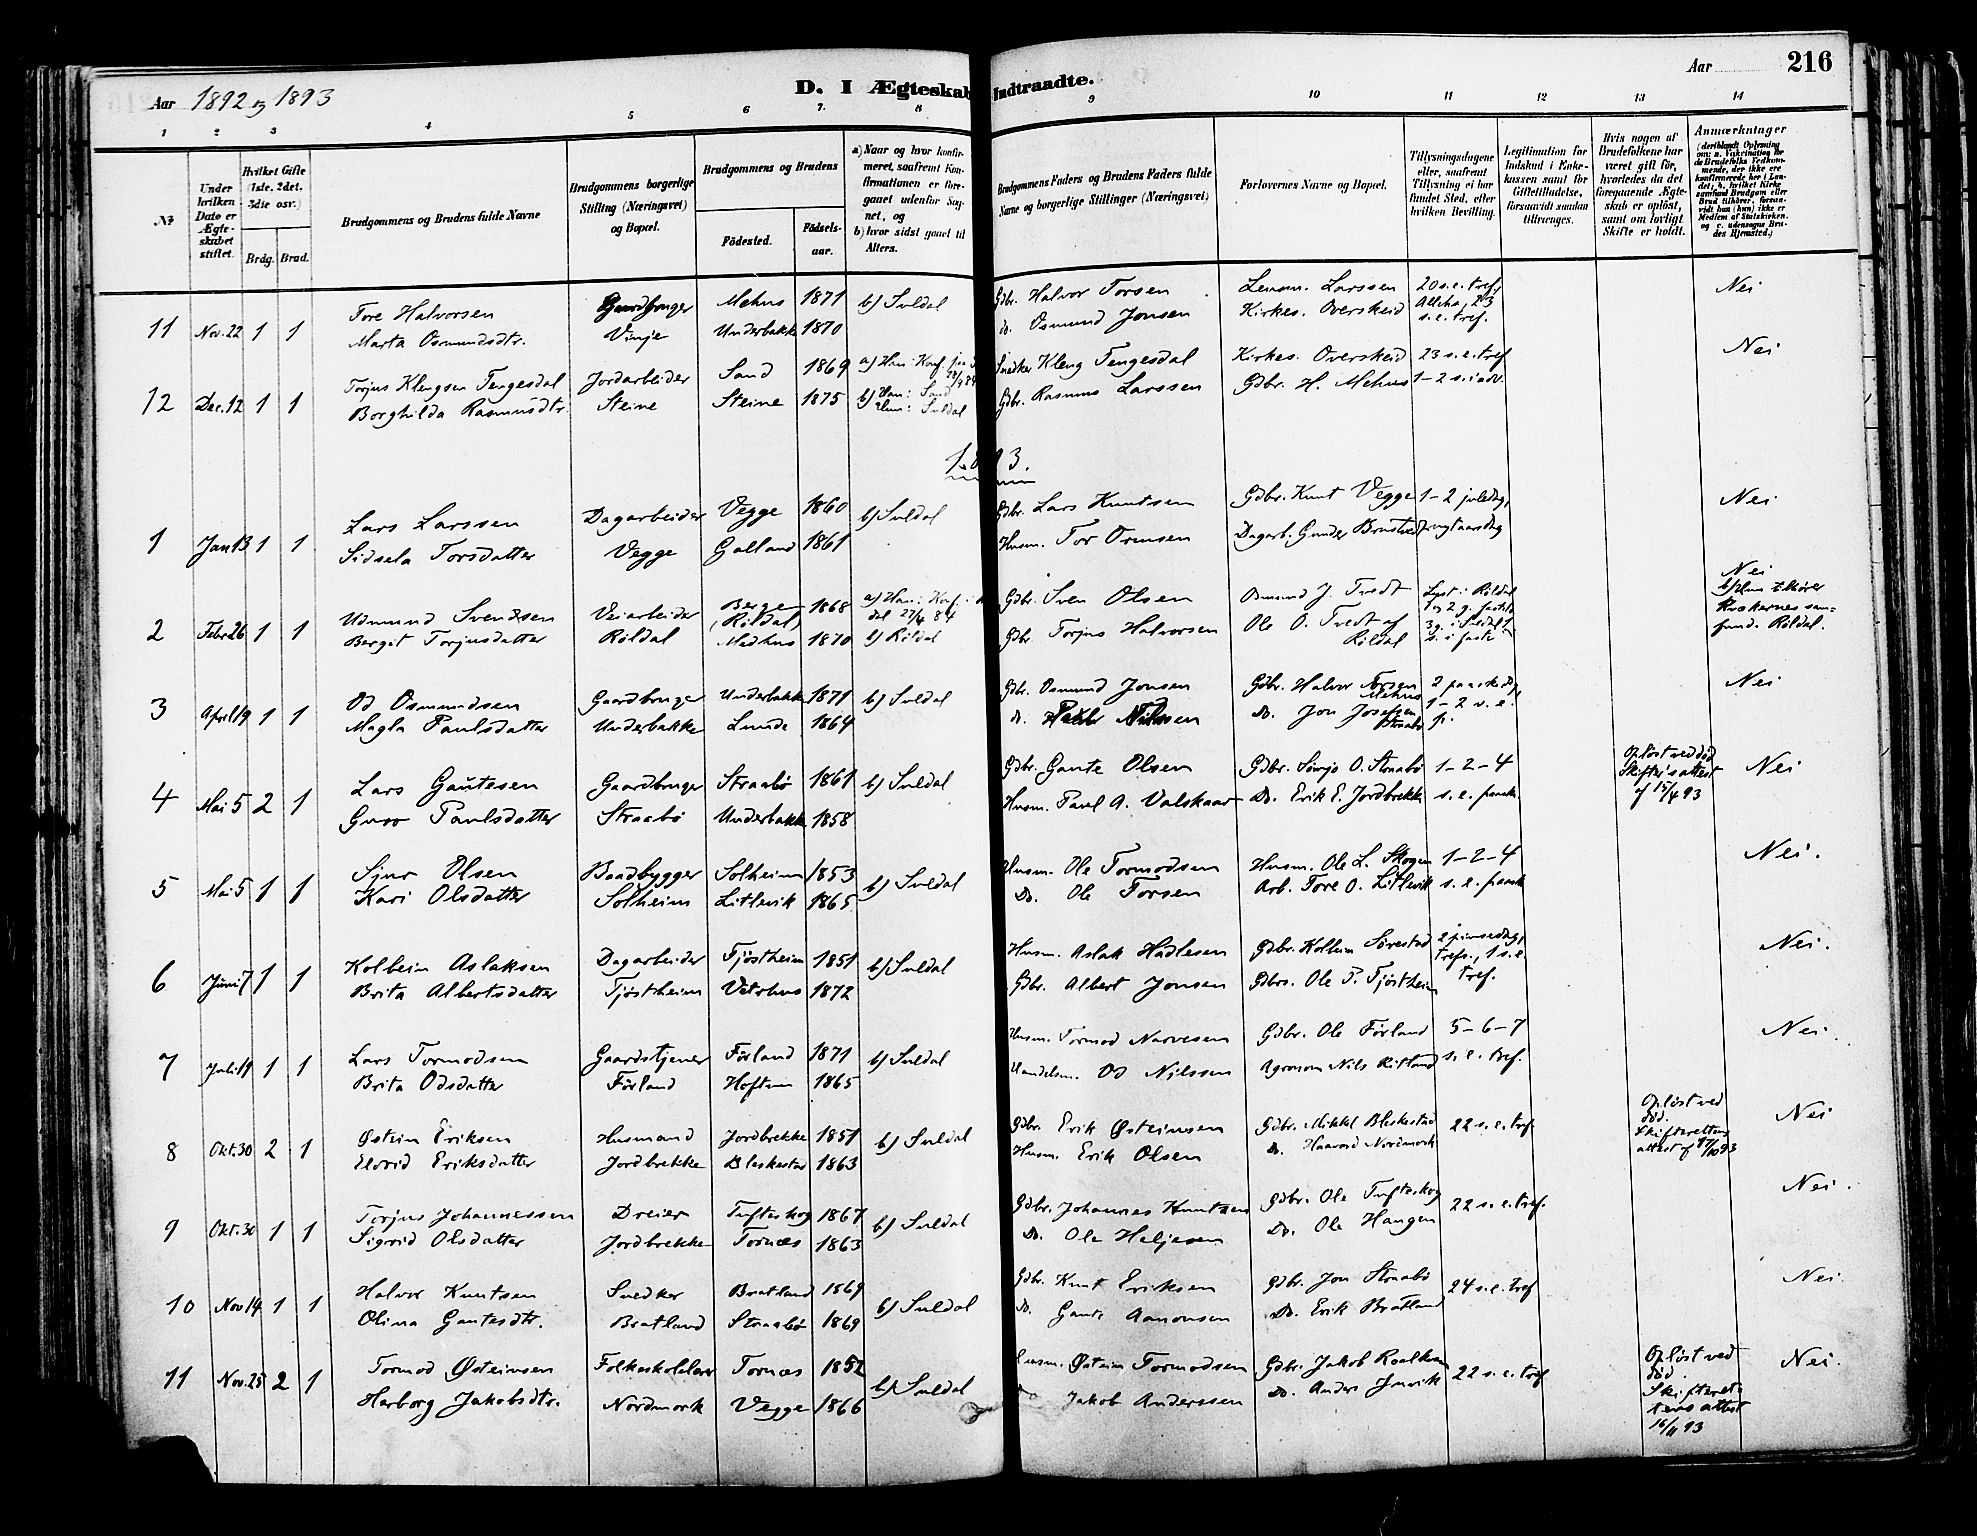 Aar 1892 og 1893
D. I Ægteskab Indtraadte.
Aar 216
1 2 3 4 5 6 7. 8 9 10 11 12 13 14
No
Under hvilken Dato er Ægteskabet stiftet.
Hvilket Gifte (1ste. 2det. 3die osv.)
Brdg. Brud.
Brudgommens og Brudens fulde Navne
Brudgommens borgerlige Stilling (Næringsvei) og Bopæl.
Brudgommens og Brudens
Födested. Födsels-aar.
a) Naar og hvor konfirmeret, saafremt Konfirmationen er foregaaet udenfor Sognet, og
b) hvor sidst gaaet til Alters.
Brudgommens Faders og Brudens Faders fulde Navne og borgerlige Stillinger (Næringsvei)
Forlovernes Navne og Bopæl.
Tillysningsdagene eller, saafremt Tillysning ei har fundet Sted, efter hvilken Bevilling.
Legitimation for Indskud i Enkekassen samt for Giftetilladelse, forsaavidt saadan tiltrænges.
Hvis nogen af Brudefolkene har været gift før, hvorledes da det foregaaende Ægteskab er opløst, samt om lovligt Skifte er holdt.
Anmærkninger
11 Nov. 22 1 1 Tore Halvorsen Gaardbruger Mehus 1871 b) Suldal Gdbr. Halvor Torsen Lensm. Larssen 20 s.e. tref, Nei
Marta Osmundsdtr. Vinje Underbakke 1870 Do. Osmund Jonsen Kirkes. Overskeid Alleha, 23 s.e. tref.
12 Dec. 12 1 1 Torjus Klengsen Tengesdal Jordarbeider Sand 1869 Snedker Kleng Tengesdal Kirkes. Overskeid 23 s.e. tref Nei
Borghilda Rasmusdtr. Steine Steine 1875 b) Han: Sand Hun: Suldal Gdbr. Rasmus Larssen Gdbr. H. Mehus 1-2 s. i adv.
1893.
1 Jan 13 1 1 Lars Larssen Dagarbeider Vegge 1860 b) Suldal Gdbr. Lars Knutsen Gdbr. Knut Vegge 1-2 juledag, Nei
Sidsela Torsdatter Vegge Galland 1861 Husm. Tor Ormsen Dagarb. Gunder nytaarsdag
2 Febr. 26 1 1 Udmund Svendsen Veiarbeider Berge (Röldal) 1868 Gdbr. Sven Olsen Osmund J. Tvedt Lyst i Röldal Nei
Bergit Torjusdatter Röldal Medhus 1870 b) Röldal Gdbr. Torjus Halvorsen Ole O. Tvedt af Röldal
b) Hun tilhører Kvækernes samfund. Röldal.
3 April 19 1 1 Od Osmundsen Gaardbruger Underbakke 1871 b) Suldal Gdbr. Osmund Jonsen Gdbr. Halvor Torsen Mehus 2 paaskedag, Nei
Magla Paulsdatter Underbakke Lunde 1864 Do. Nilssen Do. Jon Josefsen Straabø 1-2 s.e. p.
4 Mai 5 2 1 Lars Gautesen Gaardbruger Straabø 1861 b) Suldal Gdbr. Gaute Olsen Gdbr. O. Straabø 1-2-4 Opløst ved død Skifte's attest af 15/4 93 Nei
Guro Paulsdatter Straabö Underbakke 1858 Husm. Paul A. Valskaar Do. Erik E. Jordbrekke s.e. paask.
5 Mai 5 1 1 Sjur Olsen Baadbygger Solheim 1853 b) Suldal Husm. Ole Tormodsen Husm. Ole L. Skogen 1-2-4 Nei.
Kari Olsdatter Solheim Litlevik 1865 Do. Ole Torsen Arb. Tore O. Litlevik s.e. paask
6 Juni 7 1 1 Kolbein Aslaksen Dagarbeider Tjøstheim 1851 b) Suldal Husm. Aslak Hadlesen Gdbr. Kolbein Sørestad 2 pinsedag, Nei.
Brita Albertsdatter Tjøstheim Vetrhus 1872 Gdbr. Albert Jonsen Gdbr. Ole P. Tjøstheim trefs., 1 s.e. tref.
7 Juli 19 1 1 Lars Tormodsen Gaardstjener Førland 1871 b) Suldal Husm. Tormod Narvesen Gdbr. Ole Førland 5-6-7 Nei.
Brita Odsdatter Førland Hoftun 1865 Handelsm. Od Nilssen Agronom Nils Ritland s.e. tref.
8 Okt. 30 2 1 Østein Eriksen Husmand Jordbrekke 1851 b) Suldal Gdbr. Erik Østeinsen Gdbr. Mikkel Bleskestad 22 s.e. tref Opløst ved død. Skifterettens attest af 17/10 93 Nei
Eivrid Eriksdatter Jordbrekke Bleskestad 1863 Husm. Erik Olsen Do. Haavard Nordmork
9 Okt. 30 1 1 Torjus Johannessen Dreier Tufteskog 1867 b) Suldal Gdbr. Johannes Knutsen Gdbr. Ole Tufteskog 22 s.e. tref. Nei.
Sigrid Olsdatter Jordbrekke Tornæs 1863 Do. Ole Heljesen Do. Ole Haugen
10 Nov 14 1 1 Halvor Knutsen Snedker Bratland 1869 b) Suldal Gdbr. Knut Eriksen Gdbr. Jon Straabø 24 s.e. tref Nei.
Olina Gautesdtr. Bratland Straabø 1869 Do. Gaute Aamonsen Do. Erik Bratland
11 Nov. 25 2 1 Tormod Østeinsen Folkeskolelærer Tornæs 1852 b) Suldal Husm. Østein Tormodsen Gdbr. Jakob Roalkvam 22 s.e. tref Opløst ved død. Skifterettens attest 16/11 93 Nei.
Herborg Jakobsdtr. Nordmork Vegge 1866 Do. Jakob Anderssen Do. Anders Jnvik